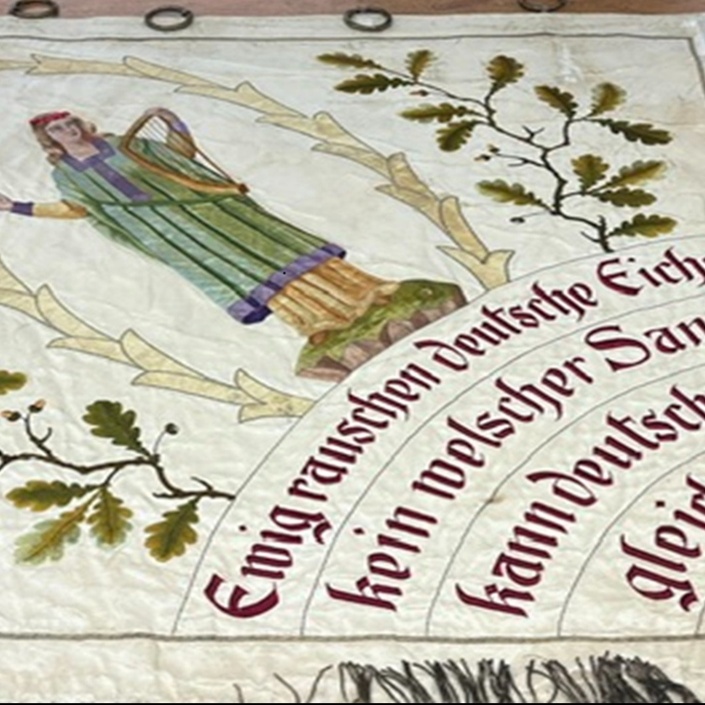 Ewig rauschen deutsche Eich
kein welscher San
kann deutsch
gleic